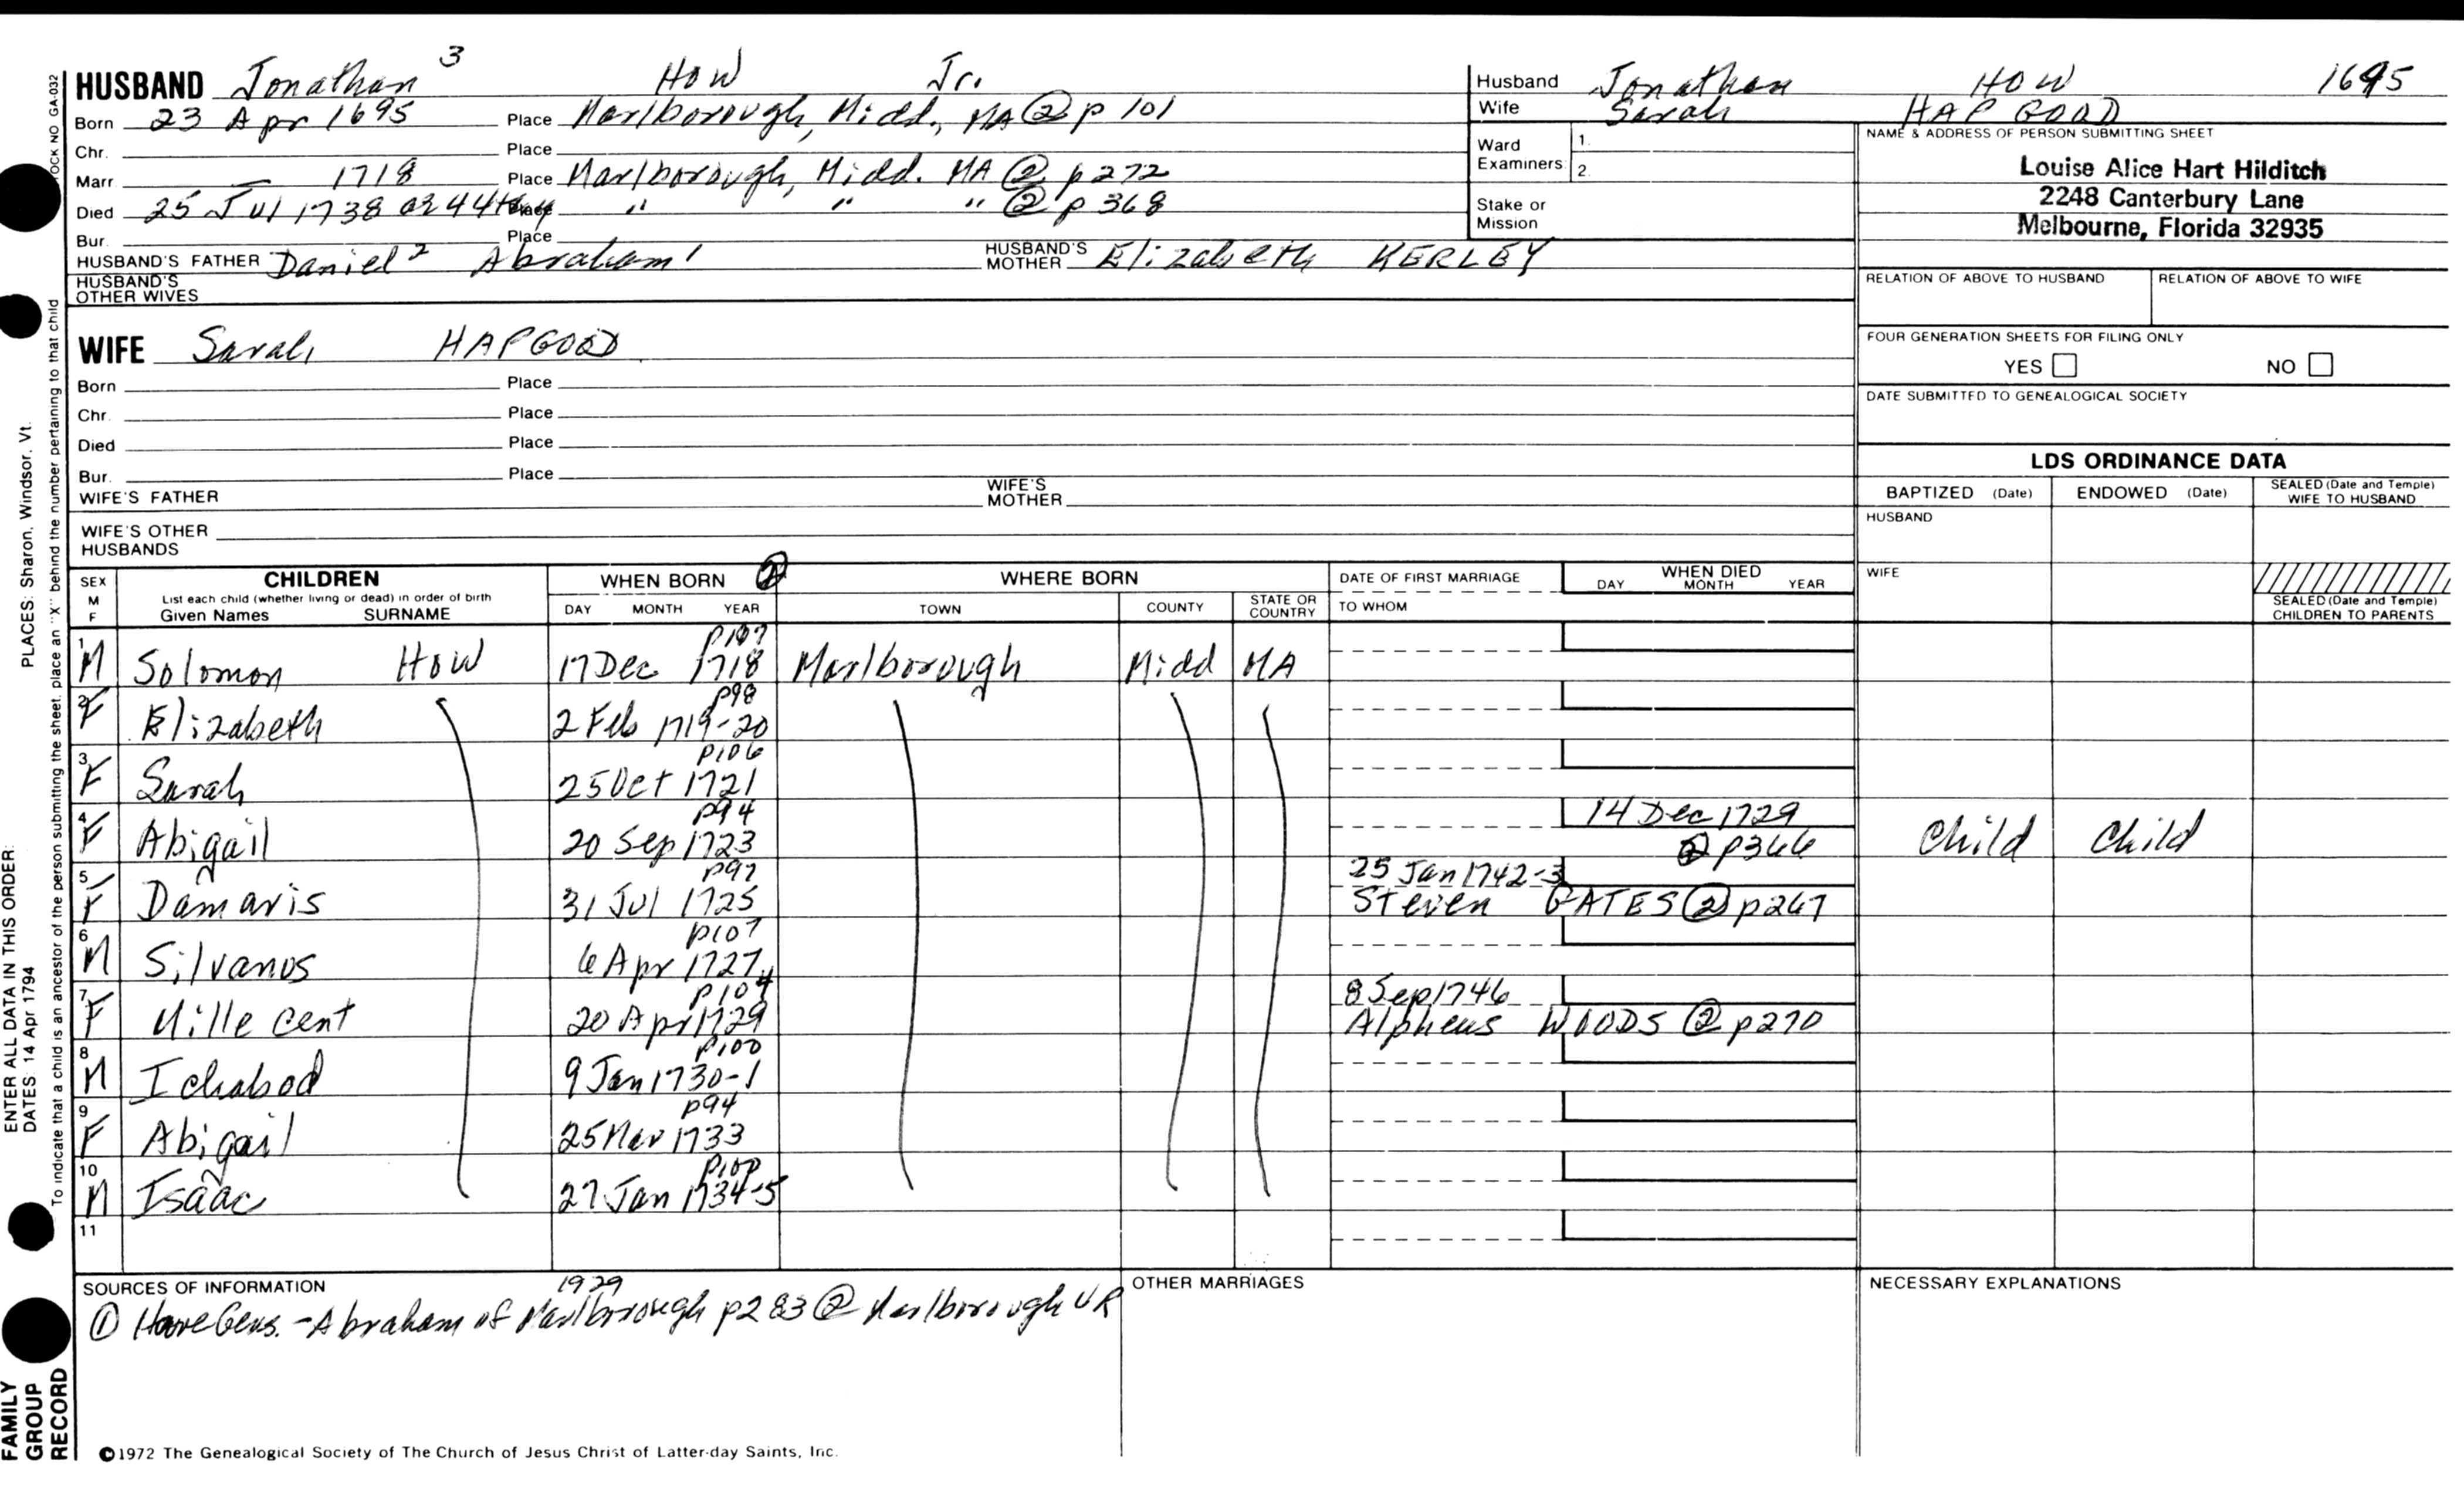 HUSBAND Jonathan 3 How Jr.
Born 23 Apr 1695 Place Marlborough, Midd., MA @ p 101
Chr. Place
Marr. — 1718 Place Marlborough, Midd. MA @ p 272
Died 25 Jul 1738 or 44 Place " " " @ p 368
Bur. Place
HUSBAND'S FATHER Daniel 2 Abraham 1 HUSBAND'S MOTHER Elizabeth KERLEY
HUSBAND'S OTHER WIVES
Husband Jonathan How 1695
Wife Sarah HAPGOOD
Ward Examiners: 1.
2.
Stake or Mission
NAME & ADDRESS OF PERSON SUBMITTING SHEET
Louise Alice Hart Hilditch
2248 Canterbury Lane
Melbourne, Florida 32935
RELATION OF ABOVE TO HUSBAND RELATION OF ABOVE TO WIFE
FOUR GENERATION SHEETS FOR FILING ONLY
YES NO
DATE SUBMITTED TO GENEALOGICAL SOCIETY
WIFE Sarah HAPGOOD
Born Place
Chr. Place
Died Place
Bur. Place
WIFE'S FATHER WIFE'S MOTHER
WIFE'S OTHER HUSBANDS
LDS ORDINANCE DATA
BAPTIZED (Date) ENDOWED (Date) SEALED (Date and Temple) WIFE TO HUSBAND
HUSBAND
WIFE
SEALED (Date and Temple) CHILDREN TO PARENTS
SEX M F CHILDREN WHEN BORN 2 WHERE BORN DATE OF FIRST MARRIAGE WHEN DIED
List each child (whether living or dead) in order of birth
Given Names SURNAME DAY MONTH YEAR TOWN COUNTY STATE OR COUNTRY TO WHOM DAY MONTH YEAR
1 M Solomon How 17 Dec 1718 p107 Marlborough Midd MA
2 F Elizabeth 2 Feb 1719-20 p98
3 F Sarah 25 Oct 1721 p106
4 F Abigail 20 Sep 1723 p94 14 Dec 1729 @ p366 Child Child
5 F Damaris 31 Jul 1725 p97 25 Jan 1742-3
Steven GATES @ p267
6 M Silvanus 6 Apr 1727 p107
7 F Millecent 20 Apr 1729 p104 8 Sep 1746
Alpheus WOODS @ p270
8 M Ichabod 9 Jan 1730-1 p100
9 F Abigail 25 Mar 1733 p94
10 M Isaac 27 Jan 1734-5 p100
11
SOURCES OF INFORMATION OTHER MARRIAGES NECESSARY EXPLANATIONS
1929
① Howe Gens. - Abraham of Marlborough p283 ② Marlborough VR
©1972 The Genealogical Society of The Church of Jesus Christ of Latter-day Saints, Inc.
STOCK NO GA-032
To indicate that a child is an ancestor of the person submitting the sheet, place an "X" behind the number pertaining to that child
PLACES: Sharon, Windsor, Vt.
ENTER ALL DATA IN THIS ORDER:
DATES: 14 Apr 1794
FAMILY GROUP RECORD